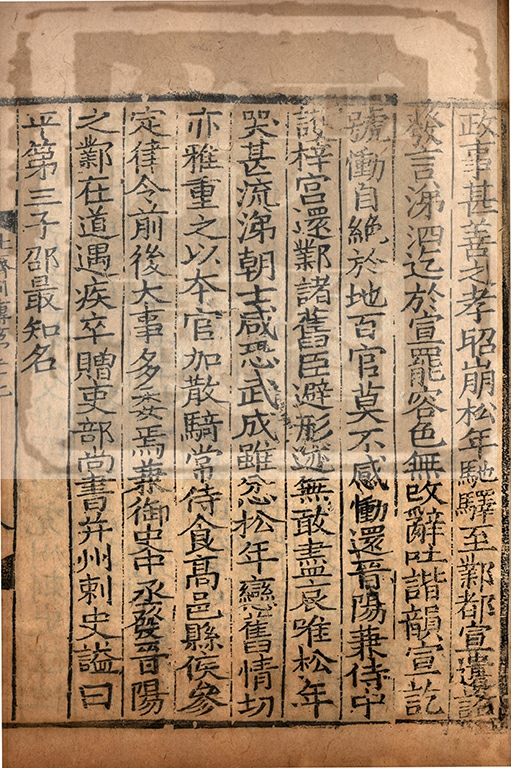 政事甚善之孝昭崩松年馳驛至鄴都宣遺詔
發言涕泗迄於宣罷容色無改辭吐諧韻宣訖
號慟自絶於地百官莫不感慟還晉陽兼侍中
護梓宮還鄴諸舊臣避形迹無敢盡哀唯松年
哭甚流涕朝士咸恐武成雖忿松年戀舊情切
亦雅重之以本官加散騎常侍食高邑縣侯參
定律令前後大事多委焉兼御史中丞發晉陽
之鄴在道遇疾卒贈吏部尚書并州刺史謚曰
平第三子邵最知名